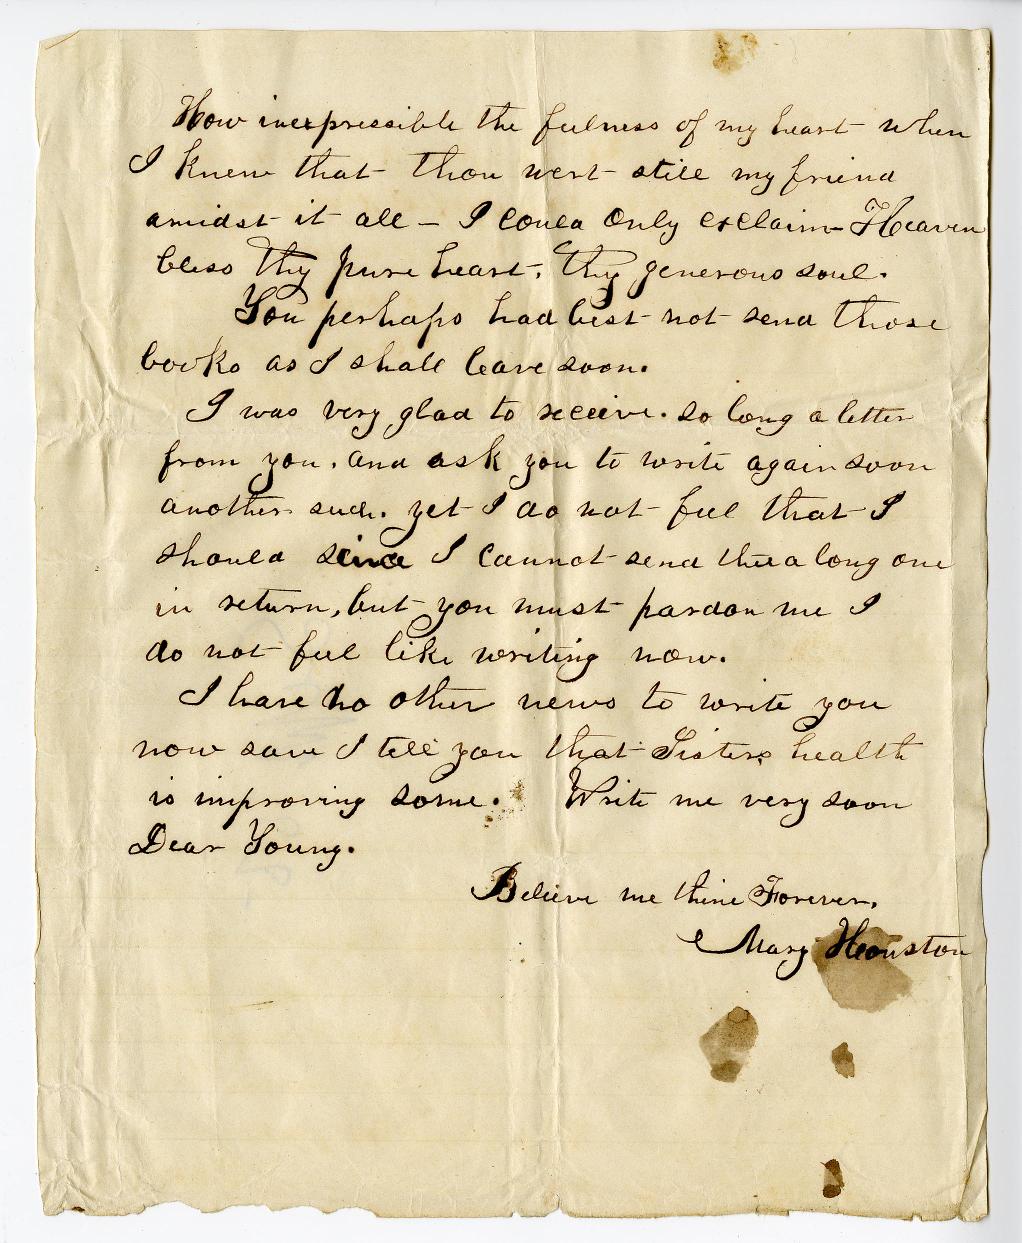 How inexpressible the fulness of my heart when
I knew that thou wert still my friend
amidst it all – I could Only exclaim – Heaven
bless thy pure heart, thy generous soul.
You perhaps had best not send those
books as I shall leave soon.
I was very glad to receive. so long a letter
from you. and ask you to write again soon
another such. yet I do not feel that I
should since I cannot send thee a long one
in return, but you must pardon me I
do not feel like writing now.
I have no other news to write you
now save I tell you that Sisters health
is improving some. Write me very soon
Dear Young.
Believe me thine Forever.
Mary Heouston